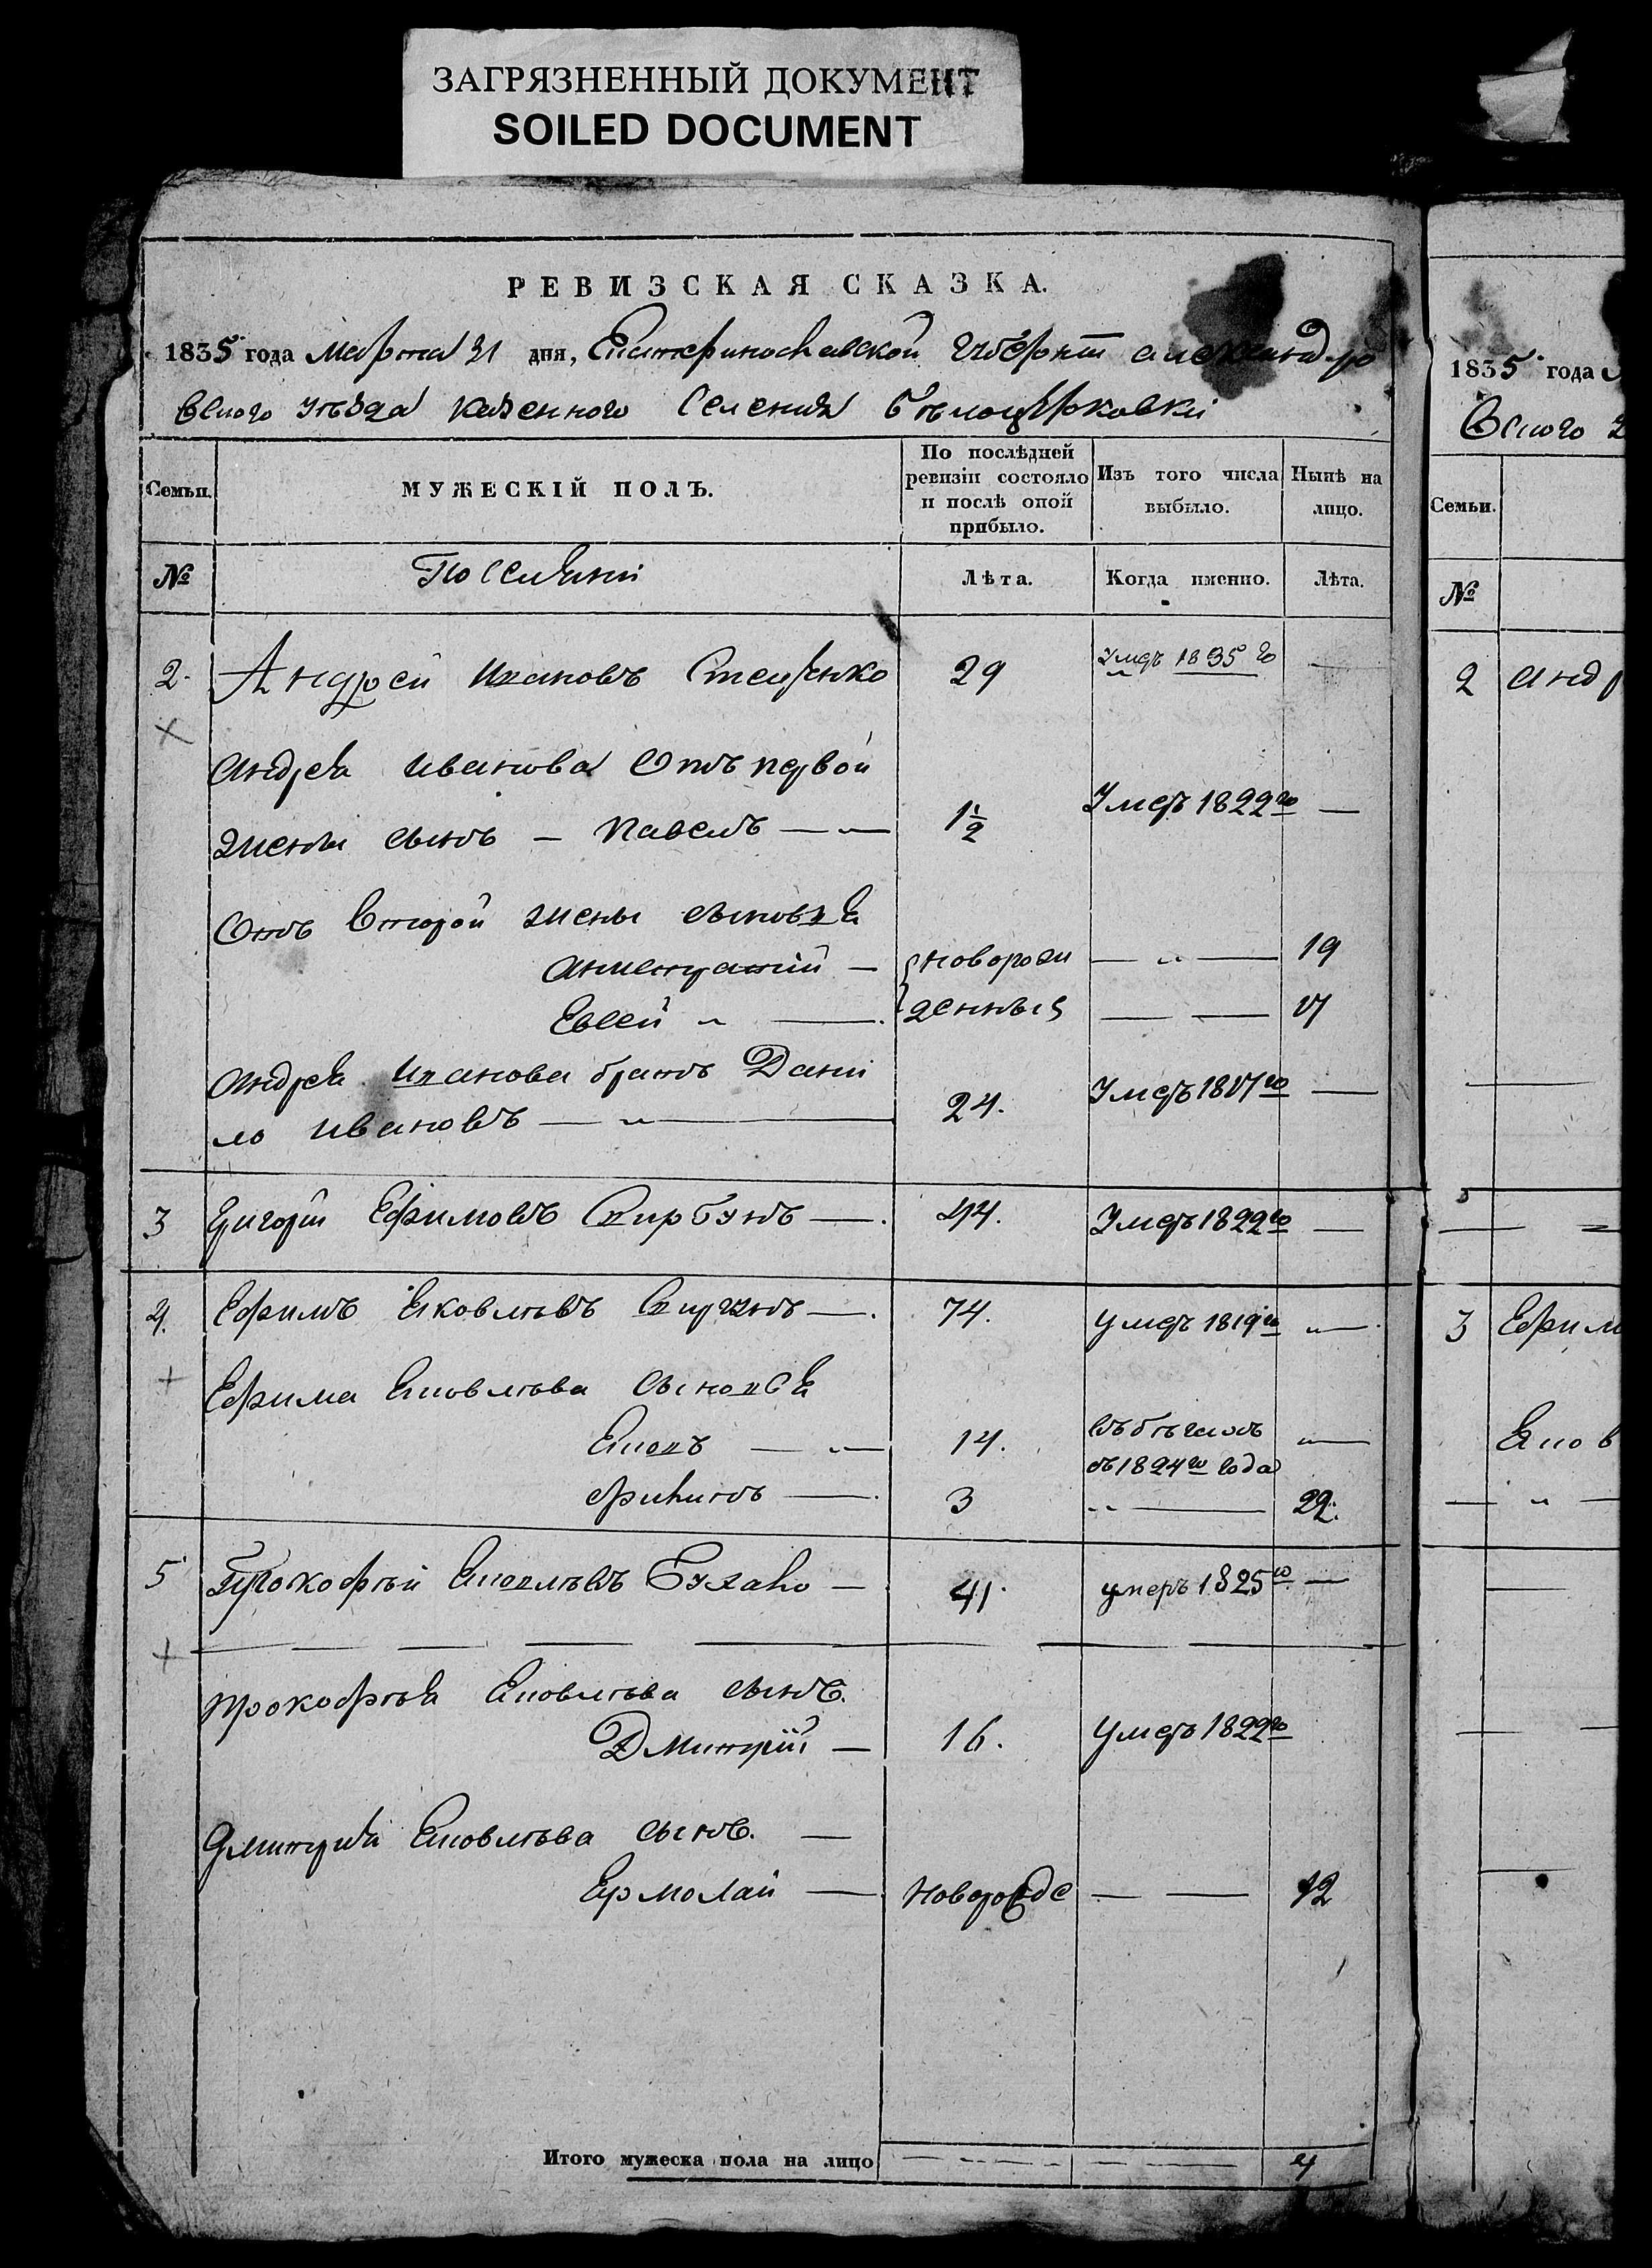 ЗАГРЯЗНЕННЫЙ ДОКУМЕНТ
SOILED DOCUMENT
РЕВИЗСКАЯ СКАЗКА.
1835 года Марта 31 дня, Екатеринославской Губерніи Александро
вскаго уѣзда казенного Селенія Бѣлоцерковки
Семьи.
МУЖЕСКІЙ ПОЛЪ.
По послѣдней ревизіи состояло и послѣ оной прибыло.
Изъ того числа выбыло.
Нынѣ на лицо.
№
Поселяни
Лѣта.
Когда именно.
Лѣта.
2. Андрей Ивановъ Стеценко 29 Умеръ 1835 го —
Андрея Иванова Отъ первой
жены сынъ — Павелъ — 1½ Умеръ 1822го —
Отъ второй жены сыновья
— новорож — 19
Евсей — денныя — 17
Андрея Иванова братъ Дани
ло Ивановъ — 24. Умеръ 1817го —
3 Григорій Ефимовъ 44. Умеръ 1822го —
4. Ефимъ Яковлѣвъ 74. умеръ 1819го —
Ефима Яковлѣва сыновья
Яковъ — 14. въ бѣгахъ —
съ 1824го года
3 — 22.
5 Прокофѣй Яковлѣвъ — 41. умеръ 1825го —
Прокофѣя Яковлѣва сынъ.
Дмитрій — 16. умеръ 1822го
Дмитрія Яковлѣва сынъ. —
Ермолай — новорожде — 12
Итого мужеска пола на лицо 4
1835 года
вскаго
Семьи.
№
2 Андр
3 Ефим
Яков